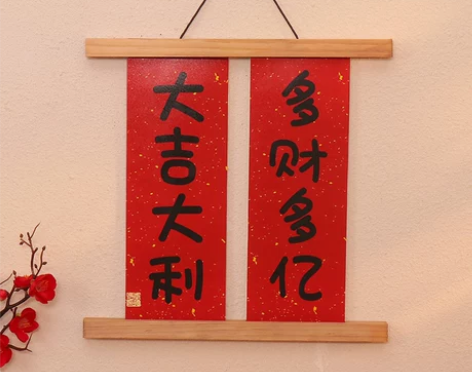 多财多亿
大吉大利